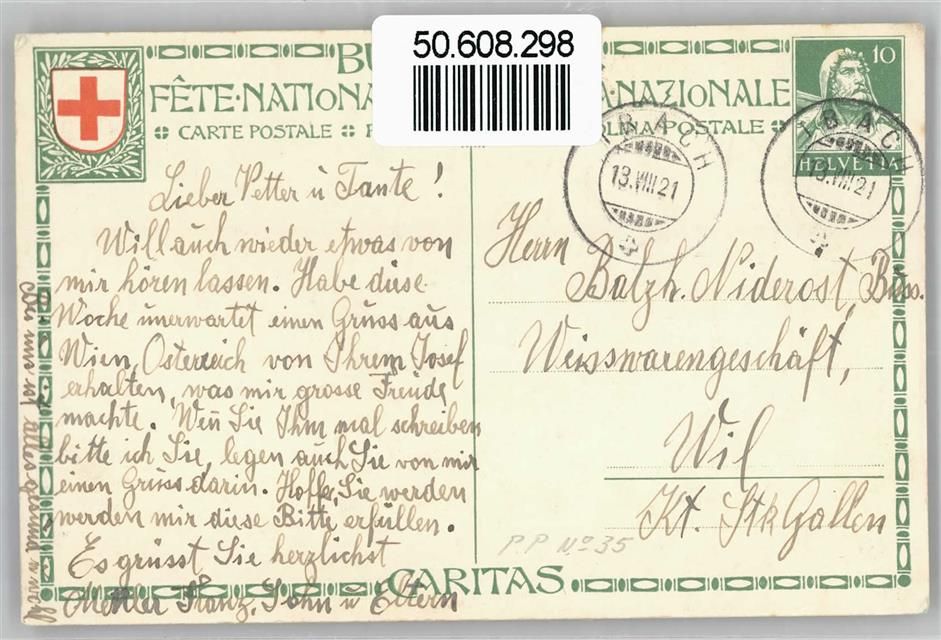 50.608.298
BU
FÊTE·NATION
A·NAZIONALE
CARTE POSTALE
OLINA·POSTALE
10
HELVETIA
IBACH
13.VIII.21
IBACH
13.VIII.21
Lieber Vetter ü Tante!
Will auch wieder etwas von
mir hören lassen. Habe diese
Woche ünerwartet einen Grüss aüs
Wien, Östereich von Ihrem Josef
erhalten, was mir grosse Freude
machte. Wen Sie Ihm mal schreiben
bitte ich Sie, legen auch Sie von mir
einen Grüss darin. Hoffe, Sie werden
werden mir diese Bitte erfüllen.
Es grüsst Sie herzlichst
Mettler Franz, Sohn ü Eltern
Bei uns ist alles gesund
Herrn
Balzh. Niderost,
Weisswarengeschäft,
Wil
Kt. Stk Gallen
P.P Nº 35
CARITAS